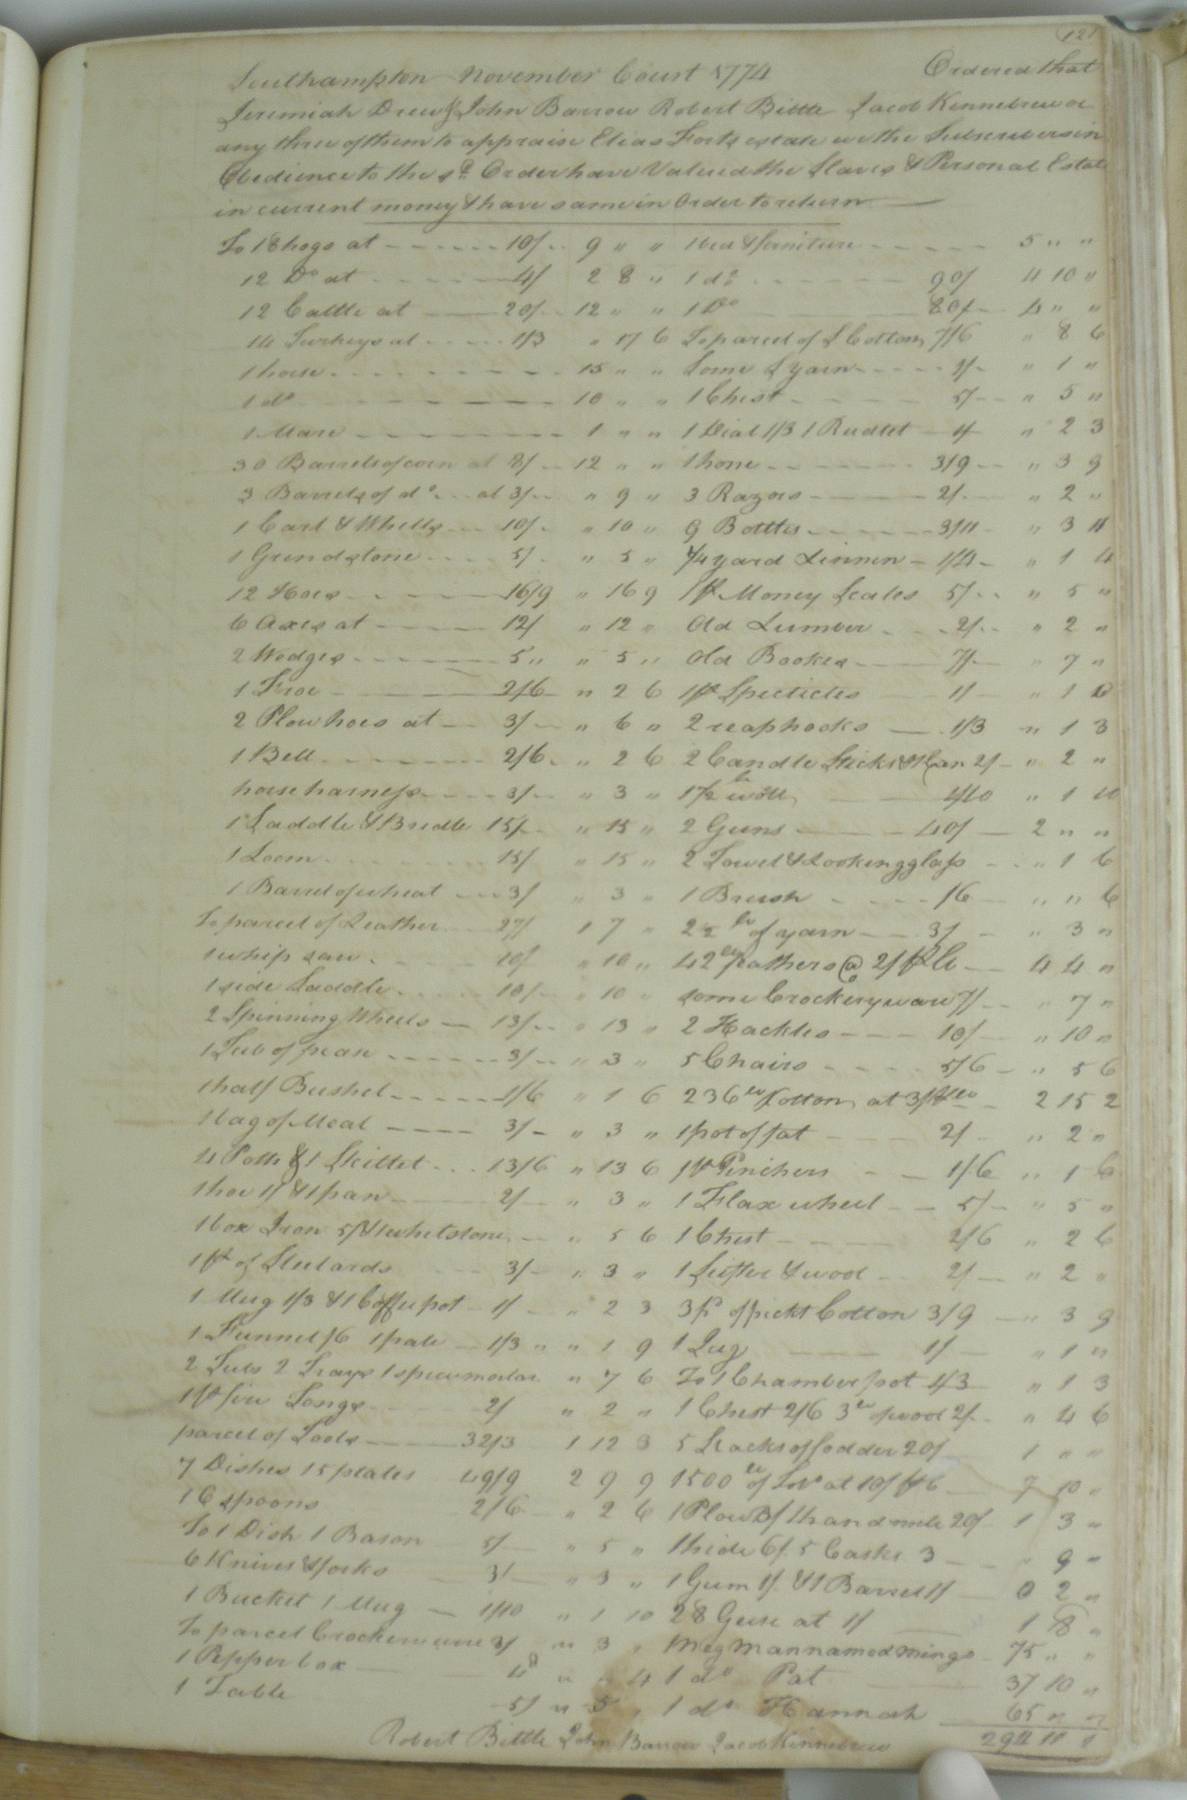 127
Southampton November Court 1774 Ordered that
Jeremiah Drew John Barrow Robert Bittle Jacob Kinnebrew or
any three of them to appraise Elias Forts estate we the Subscribers in
Obedience to the sd Order have Valued the Slaves & Personal Estate
in current money & have same in Order to return
To 18 hogs at 10/ 9 " " 1 bed & furniture 5 " "
12 Do at 4/ 2 8 " 1 do 90/ 4 10 "
12 Cattle at 20/ 12 " " 1 Do 80/ 4 " "
14 Turkeys at 1/3 " 17 6 To parcel of S Cotton 7/6 " 8 6
1 horse 15 " " Some S yarn 1/ " 1 "
1 do 10 " " 1 Chest 5/ " 5 "
1 Mare 1 " " 1 Dial 1/3 1 Rudlet 1/ " 2 3
30 Barrels of corn at 8/ 12 " " 1 hone 3/9 " 3 9
3 Barrels of do at 3/ " 9 " 3 Razors 2/ " 2 "
1 Cart & Whells 10/ " 10 " 9 Bottles 3/11 " 3 11
1 Grindstone 5/ " 5 " 3/4 yard Linnen 1/4 " 1 4
12 Hoes 16/9 " 16 9 1 pr Money Scales 5/ " 5 "
6 Axes at 12/ " 12 " Old Lumber 2/ " 2 "
2 Wedges 5 " " 5 " Old Bookes 7/ " 7 "
1 Froe 2/6 " 2 6 1 pr Specticles 1/ " 1 0
2 Plow hoes at 3/ " 6 " 2 reaphooks 1/3 " 1 3
1 Bell 2/6 " 2 6 2 Candle Sticks & Can 2/ " 2 "
horse harness 3/ " 3 " 1 1/2 lb wool 1/10 " 1 10
1 Saddle & Bridle 15/ " 15 " 2 Guns 40/ 2 " "
1 Loom 15/ " 15 " 2 Towel & Lookingglass " 1 6
1 Barrel of wheat 3/ " 3 " 1 Brush /6 " " 6
To parcel of Leather 27/ 1 7 " 2 1/2 lb of yarn 3/ " 3 "
1 whip saw 10/ " 10 " 42 lb feathers @ 2/ pr lb 4 4 "
1 side Saddle 10/ " 10 " some Crockeryware 7/ " 7 "
2 Spinning Wheels 13/ " 13 " 2 Hackles 10/ " 10 "
1 Tub of pean 3/ " 3 " 5 Chairs 5/6 " 5 6
1 half Bushel 1/6 " 1 6 236 lb Cotton at 2 15 2
1 bag of Meal 3/ " 3 " 1 pot of fat 2/ " 2 "
4 Potts & 1 Skittet 13/6 " 13 6 1 pr Pinchers 1/6 " 1 6
1 hoe 1/ & 1 pan 2/ " 3 " 1 Flax wheel 5/ " 5 "
1 box Iron 5/ & 1 whetstone " 5 6 1 Chest 2/6 " 2 6
1 pr of Stulards 3/ " 3 " 1 Sifter & wood 2/ " 2 "
1 Mug 1/3 & 1 Coffee pot 1/ " 2 3 3 of pickt Cotton 3/9 " 3 9
1 Funnel /6 1 pale 1/3 " " 1 9 1 Lug 1/ " 1 "
2 Tubs 2 Trays 1 spice mortar " 7 6 To 1 Chamber pot 1/3 " 1 3
1 pr fire Tongs 2/ " 2 " 1 Chest 2/6 3 lb of wool 2/ " 4 6
parcel of Tools 32/3 1 12 3 5 Stacks of fodder 20/ 1 " "
7 Dishes 15 plates 49/9 2 9 9 1500 lb of at 10/ 7 10 "
16 spoons 2/6 " 2 6 1 Plow 20/ 1 3 "
To 1 Dish 1 Bason 5/ " 5 " 1 hide 6/ 5 Casks 3 " 9 "
6 Knives & forks 3/ " 3 " 1 Gum 1/ & 1 Barrell 1/ 0 2 "
1 Bucket 1 Mug 1/10 " 1 10 28 Geese at 1/ 1 8 "
To parcel Crockeryware 3/ " 3 " 1 neg man named mingo 75 " "
1 Pepper box 4d " " 4 1 do Pat 37 10 "
1 Table 5/ " 5 " 1 do Hannah 65 " "
Robert Bittle John Barrow Jacob Kinnebrew 294 11